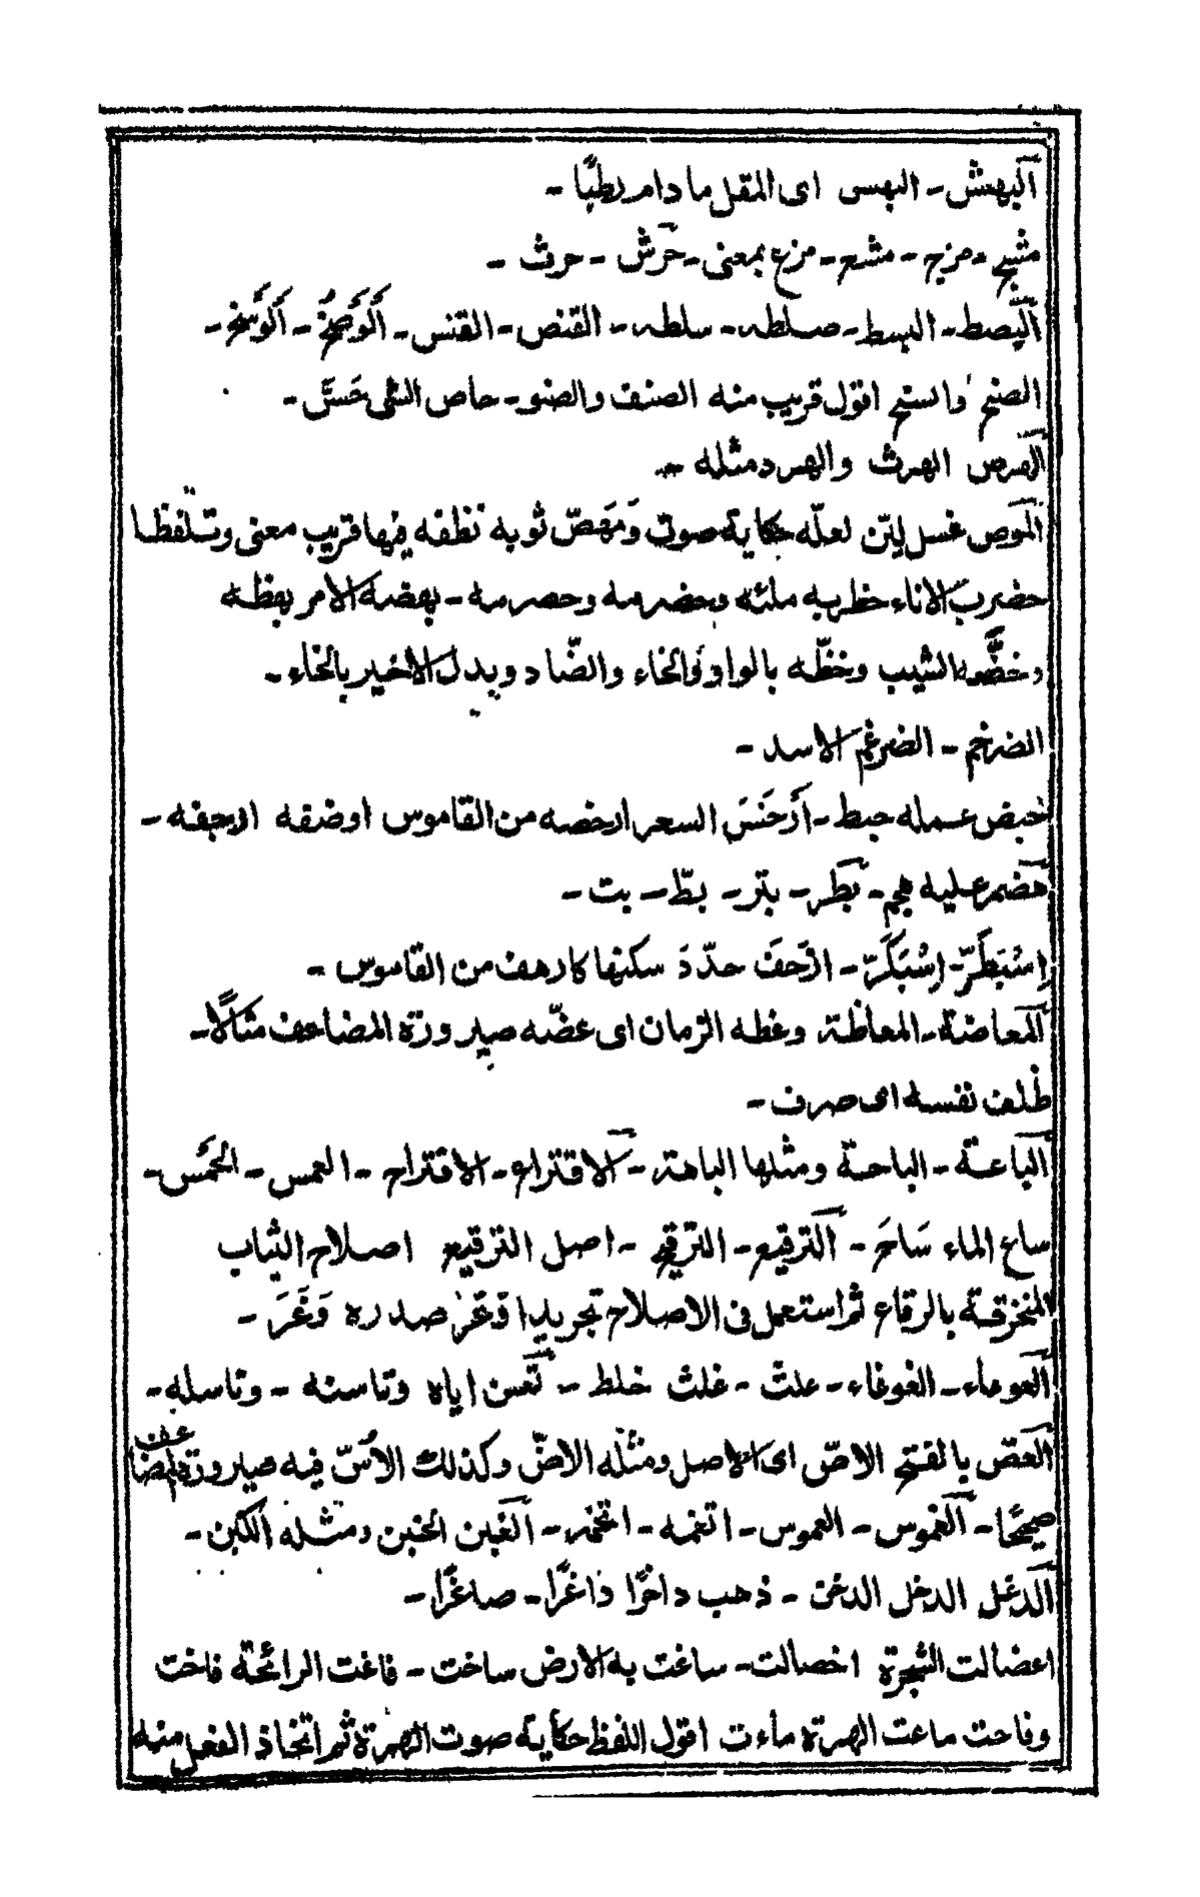 البهش - البهس اى المقل ما دام رطبًا -
مشج - مزج - مشع - مزع بمعنى - خرش - حرث -
البصط - البسط - صلطه - سلطه - القنص - القنس - ألوَصخُ - ألوَسخ -
الصنح والسنح اقول قريب منه الصنف والصنو - حاص الشى حَسَّ -
الهرص الهرث والهرد مثله -
الموص غسل ليّن لعلّه حكاية صوت وَمَهَصّ ثوبه نظفه فيها قريب معنى وتلفظا
حضرب الاناء خظربه ملئه وحضرمه وحصرمه - بهضه الامر بهظه
وخضّه الشيب وخظّه بالواو والخاء والضّاد وبدل الاخير بالخاء -
الضرخم - الضرغم الاسد -
حبض عمله حبط - أَرْخَسَ السعر ارخصه من القاموس اوضفه اوجفه -
هضم عليه هجم - بَطَر - بتر - بطّ - بت -
اِسْبَطَرّ - اِسْبَكَرّ - ازحَفَ حدّدَ سكنها كارهف من القاموس -
المعاضة - المعاظة وغطه الزمان اى عضّه صيرورة المضاعف مثالًا -
ظلف نفسه اى صرف -
الباعة - الباحة ومثلها الباهة - الاقتراع - الاقتراح - العمس - الحَمَس -
ساع الماء سَاحَ - الترقيع - الترقيح - اصل الترقيع اصلاح الثياب
المنخرقة بالرقاع ثم استعمل فى الاصلاح تجريدا وَغَرَ صدره وَغَرَ -
العوعاء - الغوغاء - علث - غلث خلط - تَعسن اياه وتاسنه - وتاسله -
العَصّ بالفتح الاصّ اى الاصل ومثله الاضّ وكذلك الاُسّ فيه صيرورة المضاعف
صحيحًا - الغموس - العموس - اتغمه - اتخمه - الغبن الخبن ومثله الكبن -
الدغل الدخل الدخن - ذهب داخرًا ذاغرًا - صاغرًا -
اعضالت الشجرة اخصالت - ساغت به الارض ساخت - فاغت الرائحة فاخت
وفاحت ماعت الهرة ماءت اقول اللفظ حكاية صوت الهرة ثم اتخاذ الفعل منه